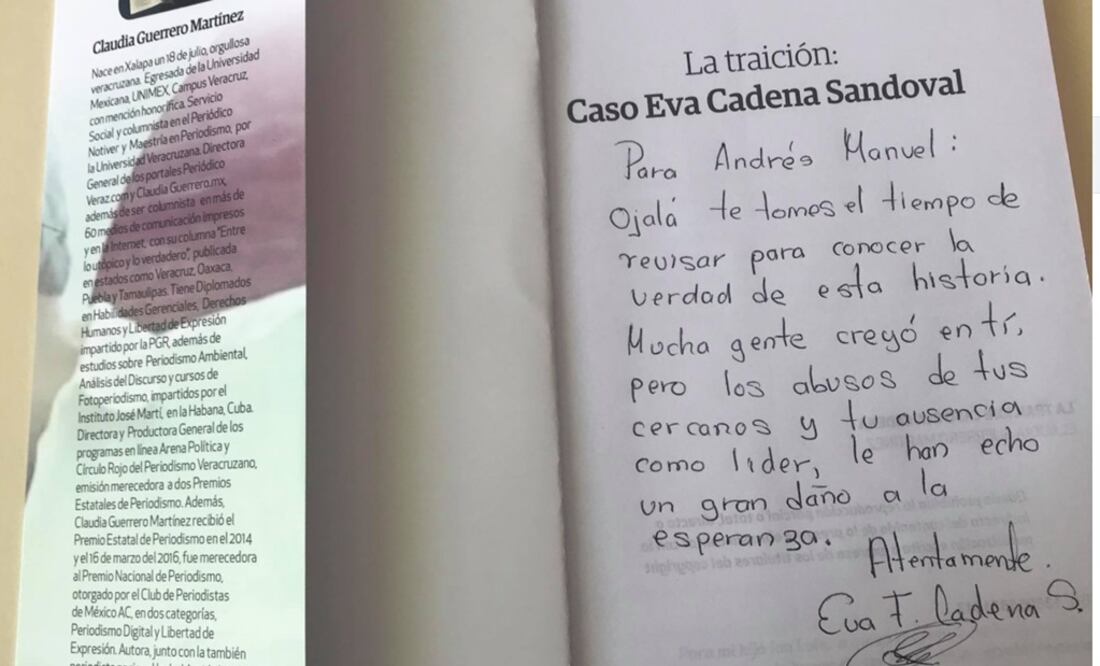 Claudia Guerrero Martínez
Nace en Xalapa un 18 de julio, orgullosa
veracruzana. Egresada de la Universidad
Mexicana, UNIMEX, Campus Veracruz,
con mención honorífica. Servicio
Social y columnista en el Periódico
Notiver y Maestría en Periodismo, por
la Universidad Veracruzana. Directora
General de los portales Periódico
Veraz.com y Claudia Guerrero.mx,
además de ser columnista en más de
60 medios de comunicación impresos
y en la Internet, con su columna "Entre
lo utópico y lo verdadero", publicada
en estados como Veracruz, Oaxaca,
Puebla y Tamaulipas. Tiene Diplomados
en Habilidades Gerenciales, Derechos
Humanos y Libertad de Expresión
impartido por la PGR, además de
estudios sobre Periodismo Ambiental,
Análisis del Discurso y cursos de
Fotoperiodismo, impartidos por el
Instituto José Martí, en la Habana, Cuba.
Directora y Productora General de los
programas en línea Arena Política y
Círculo Rojo del Periodismo Veracruzano,
emisión merecedora a dos Premios
Estatales de Periodismo. Además,
Claudia Guerrero Martínez recibió el
Premio Estatal de Periodismo en el 2014
y el 16 de marzo del 2016, fue merecedora
al Premio Nacional de Periodismo,
otorgado por el Club de Periodistas
de México AC, en dos categorías,
Periodismo Digital y Libertad de
Expresión. Autora, junto con la también
La traición:
Caso Eva Cadena Sandoval
Para Andrés Manuel:
Ojalá te tomes el tiempo de
revisar para conocer la
verdad de esta historia.
Mucha gente creyó en tí,
pero los abusos de tus
cercanos y tu ausencia
como lider, le han echo
un gran daño a la
esperanza.
Atentamente.
Eva F. Cadena S.